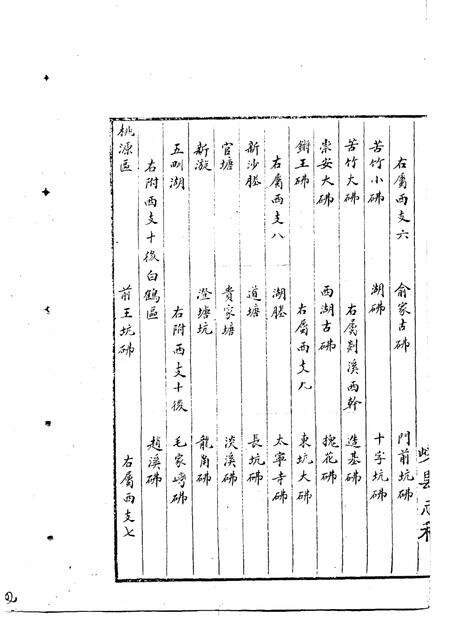 右屬西支六　俞家古砩　門前坑砩
苦竹小砩　湖砩　十字坑砩
苦竹大砩　右屬剡溪西幹　造基砩
崇安大砩　西湖古砩　槐花砩
謝王砩　右屬西支九　東坑大砩
右屬西支八　湖塍　太寧寺砩
新沙塍　道塘　長坑砩
官塘　貴家塘　淡溪砩
新漩　澄塘坑　龍角砩
五則湖　右附西支十後　毛家灣砩
右附西支十後白鶴區　趙溪砩
桃源區　前王坑砩　右屬西支七